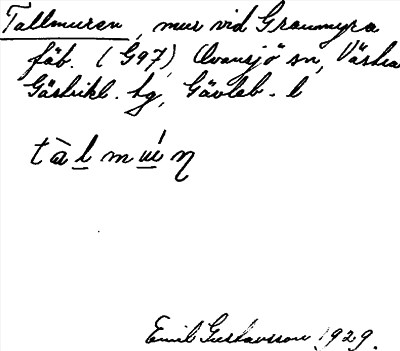 Tallmuren, mur vid Granmyra
fäb. (G97), Ovansjö sn, Västra
Gästrikl. hg, Gävleb. l
Emil Gustavsson 1929.